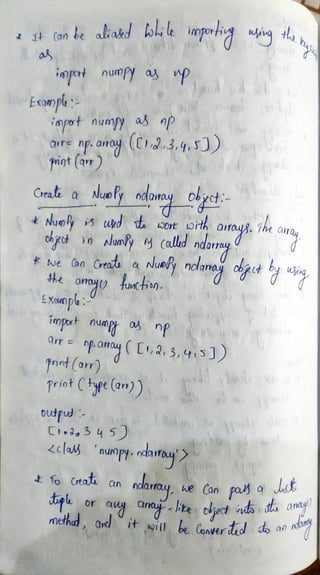 * It can be aliased while importing using the keyword
as
import numpy as np
Example :-
import numpy as np
arr = np.array ([1,2,3,4,5])
print (arr)
Create a NumPy ndarray Object:-
* NumPy is used to work with arrays. The array
object in NumPy is called ndarray
* we can create a NumPy ndarray object by using
the array() function.
Example :-
import numpy as np
arr = np.array ( [1,2,3,4,5])
print (arr)
print ( type (arr))
output :-
[1 2 3 4 5]
<class 'numpy.ndarray'>
* To create an ndarray, we can pass a list
tuple or any array-like object into the array()
method, and it will be converted to an ndarray